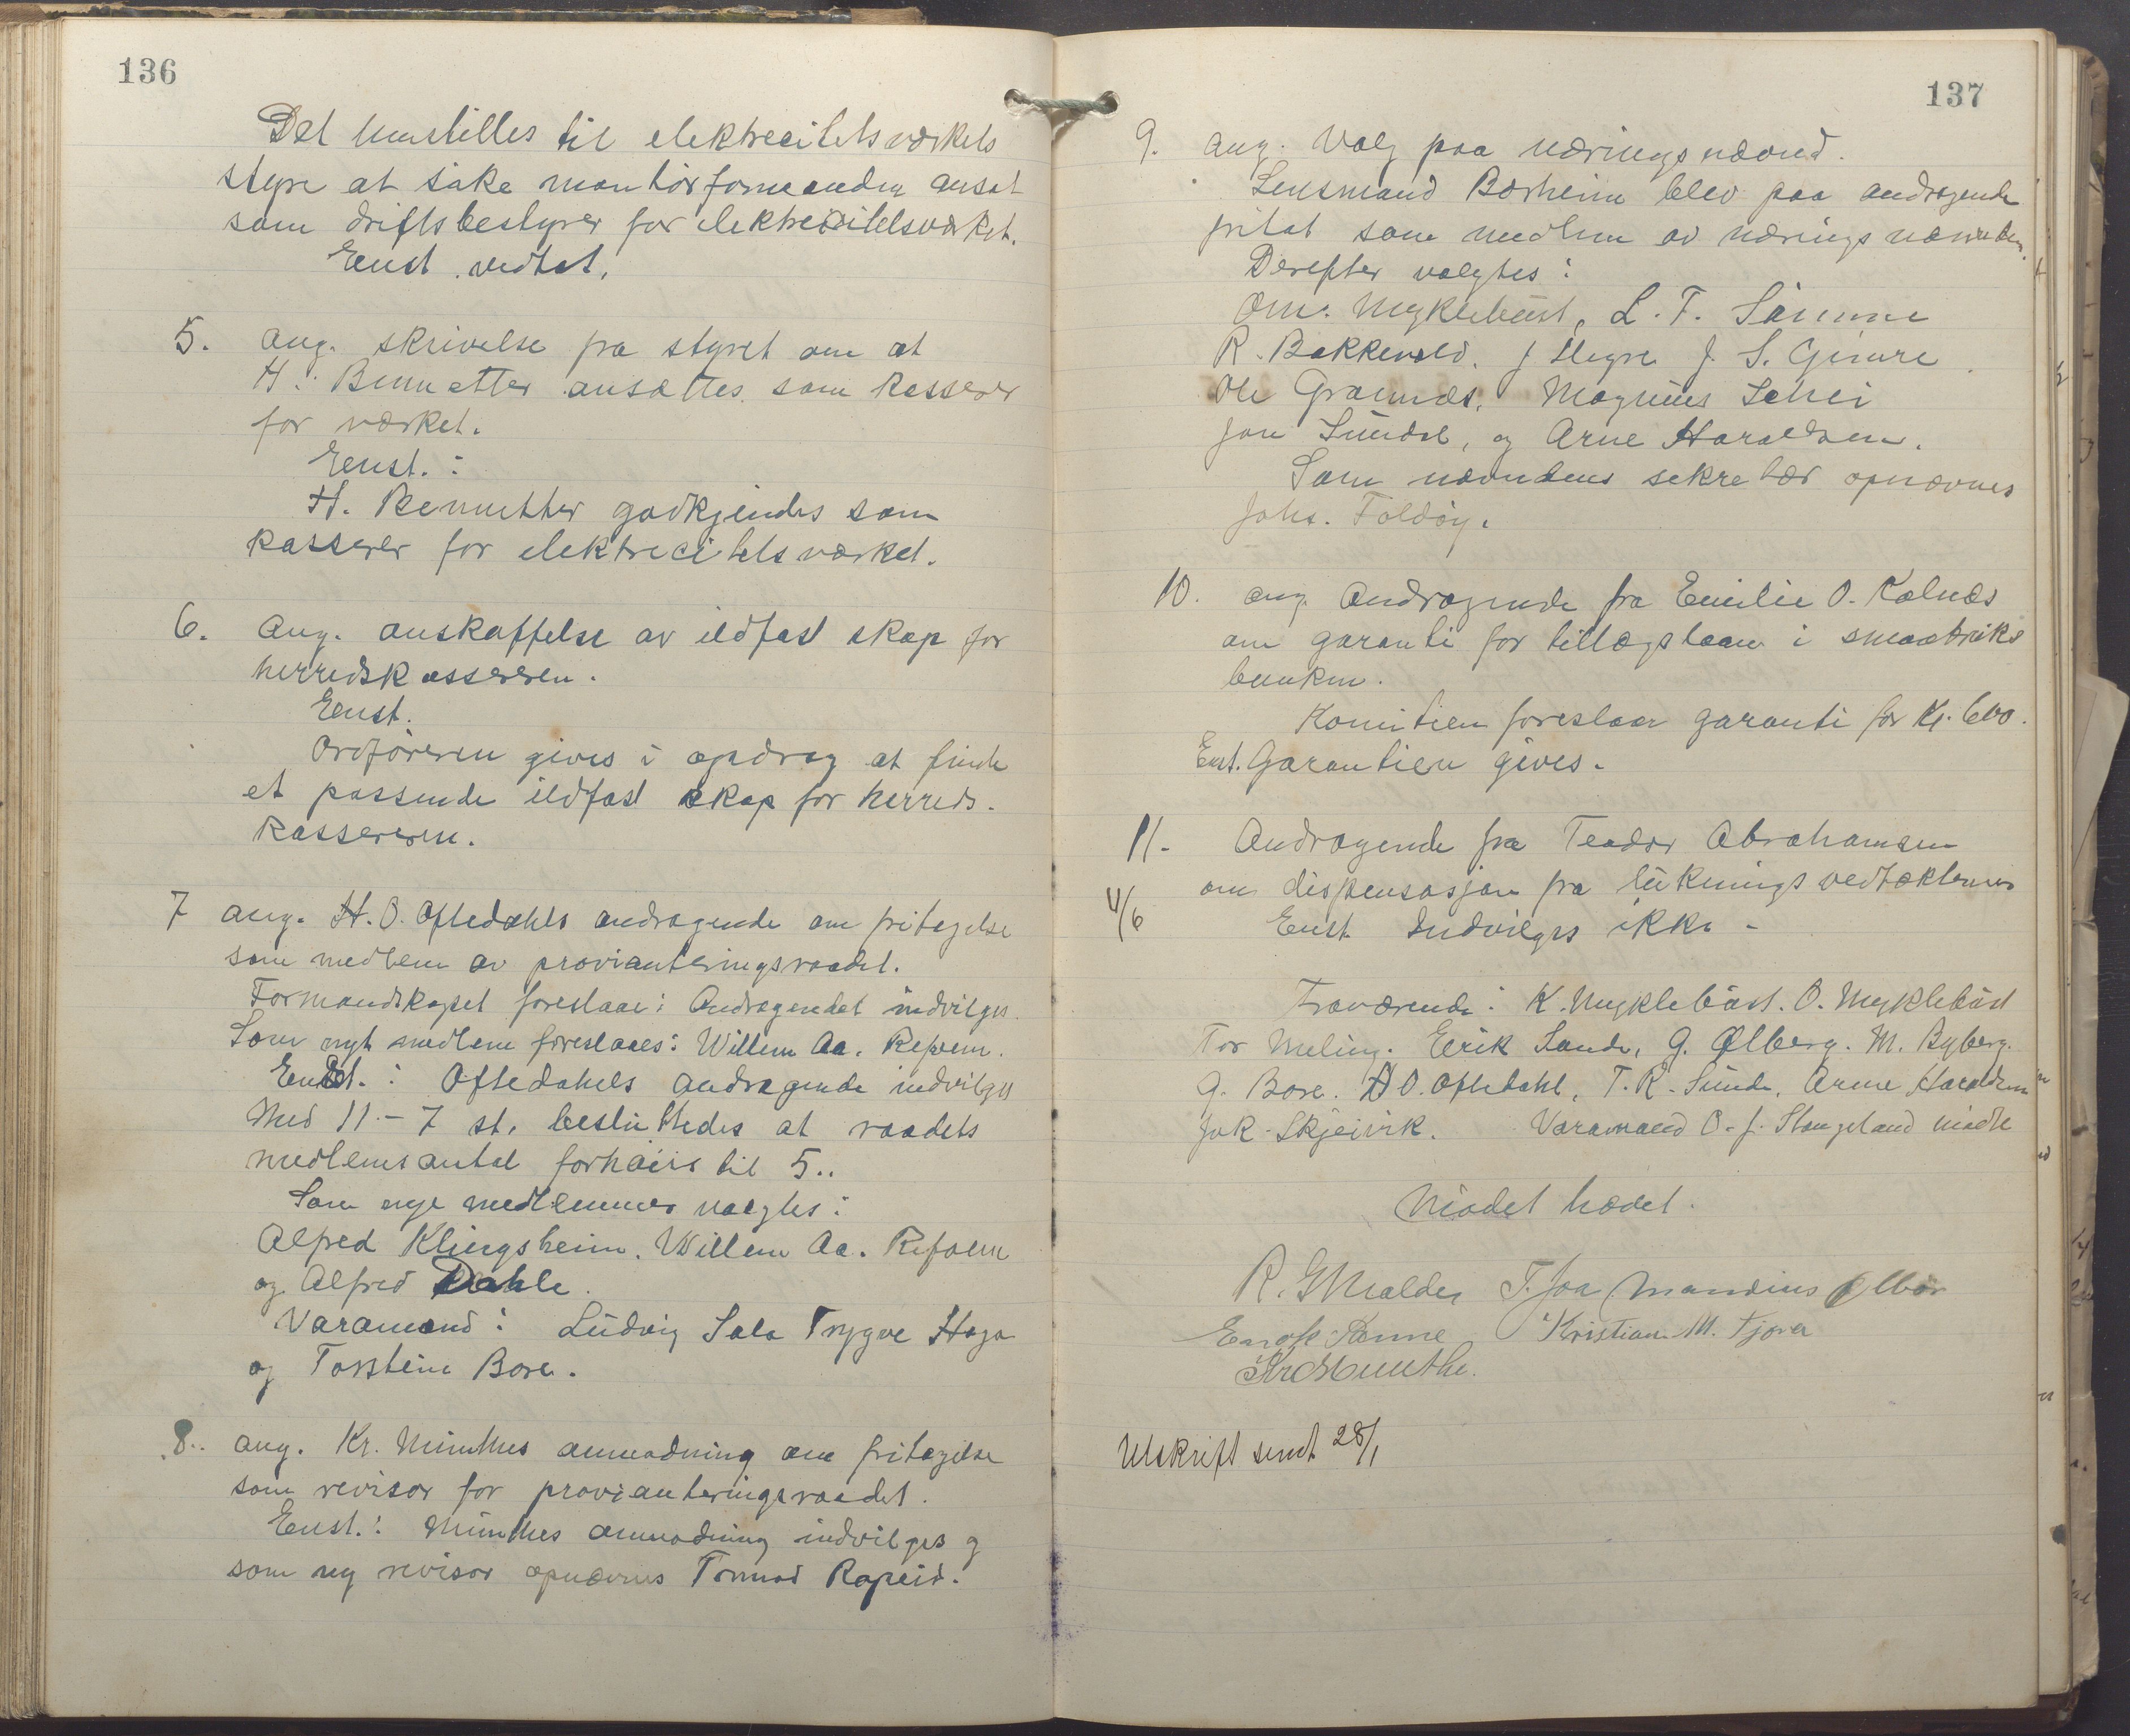 136
Det henstilles til elektrecitetsværkets
styre at søke montørformanden ansat
som driftsbestyrer for elektrecitetsværket.
Enst. vedtat.
5. Ang. skrivelse fra styret om at
H. Bennetter ansættes som kasserer
for værket.
Enst.:
H. Bennetter godkjendes som
kasserer for elektrecitetsværket.
6. Ang. anskaffelse av ildfast skap for
herredskassereren.
Enst.
Ordføreren gives i opdrag at finde
et passende ildfast skap for herreds-
kassereren.
7 ang. H. O. Oftedahls andragende om fritagelse
som medlem av provianteringsraadet.
Formandskapet foreslaar: Andragendet indvilges.
Som nyt medlem foreslaaes: Willem Aa. Refsem.
Enst.: Oftedahls andragende indvilges
Med 11 - 7 st. besluttedes at raadets
medlemsantal forhøies til 5..
Som nye medlemmer valgtes:
Alfred Klingsheim. Willem Aa. Refsem
og Alfred Dahle.
Varamænd: Ludvig Sola Trygve Haga
og Torstein Bore.
8.. ang. Kr. Munthes anmodning om fritagelse
som revisor for provianteringsraadet.
Enst.: Munthes anmodning indvilges og
som ny revisor opnævnes Tormod Rapeid.
137
9. ang. Valg paa næringsnævnd.
Lensmand Børheim blev paa andragende
fritat som medlem av næringsnævnden.
Derefter valgtes:
Om. Myklebust, L. F. Sømme
R. Bakkevold. J Hegre J. S. Gimre
Ole Grannes, Magnus Schei
Jon Sundal, og Arne Haraldsen.
Som nævndens sekretær opnævnes
Johs. Foldøy.
10. ang. Andragende fra Emilie O. Kolnes
om garanti for tillægslaan i smaabruks
banken.
Komiteen foreslaar garanti for Kr. 600.
Enst. Garantien gives.
11. Andragende fra Teodor Abrahamsen
om dispensasjon fra liknings vedtækterne
4/6 Enst. Indvilges ikke -
Fraværende: K. Myklebust. O. Myklebust
Tor Meling. Eirik Sande, G. Ølberg. M. Byberg.
G. Bore. H O. Oftedahl, T. R. Sunde, Arne Haraldsen
Jak. Skjeivik. Varamand O. J. Stangeland møtte
Mødet hævet.
R. G Malde T. Joa Mandius Ølbør
Enok Sømme Kristian M. Tjora
Kr Munthe.
Utskrift sendt 28/1